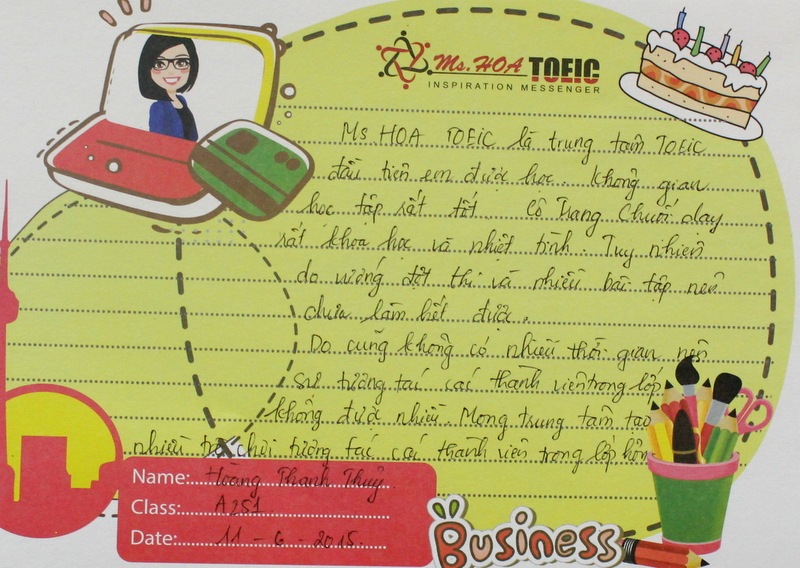 Ms.HOA TOEIC
INSPIRATION MESSENGER
Ms.HOA TOEIC là trung tâm TOEIC
đầu tiên em được học. Không gian
học tập rất tốt. Cô Trang Chuối dạy
rất khoa học và nhiệt tình. Tuy nhiên
do vướng đợt thi và nhiều bài tập nên
chưa làm hết được.
Do cũng không có nhiều thời gian nên
sự tương tác các thành viên trong lớp
không được nhiều. Mong trung tâm tạo
nhiều trò chơi tương tác các thành viên trong lớp hơn
Name: Hoàng Thanh Thuỷ
Class: A251
Date: 11 - 6 - 2015.
Business